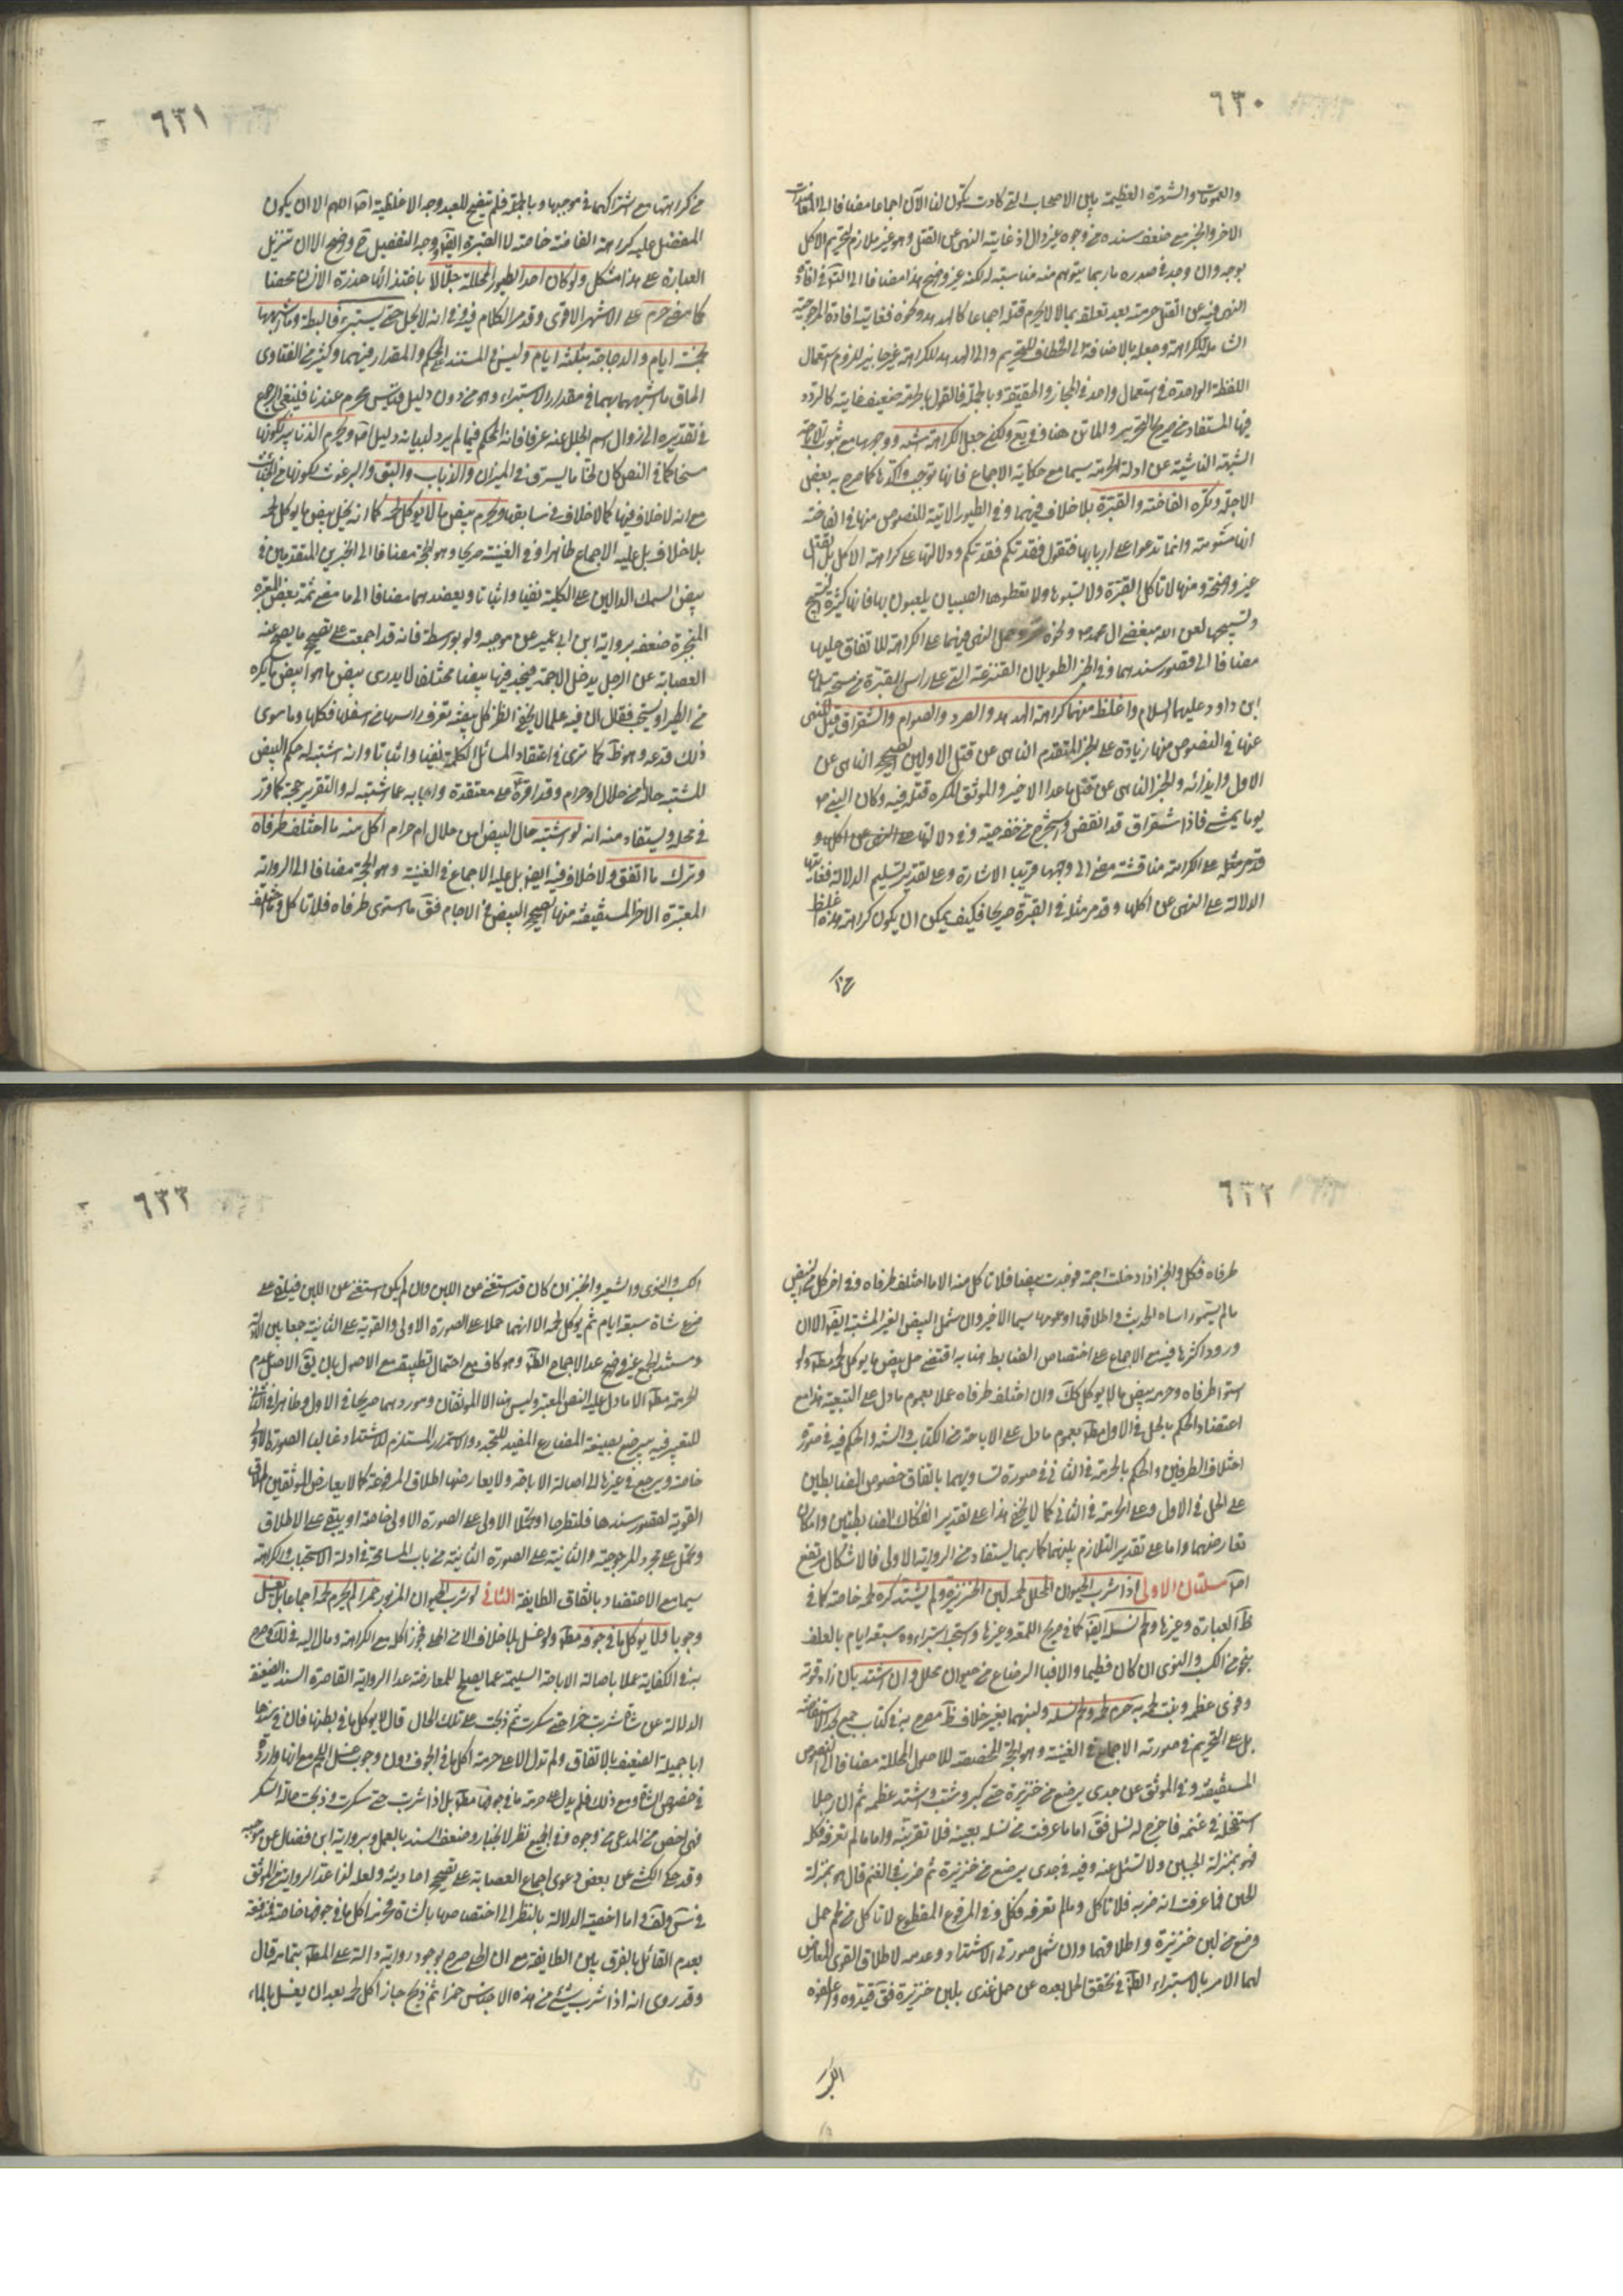 ٦٣٠
والعمومات والشهرة العظيمة بين الاصحاب التي كادت تكون لنا الآن اجماعا مضافا الى
الاخر والخبر مع ضعف سنده من وجوه غير دال اذ غايته النهي عن القتل وهو غير ملازم لتحريم الاكل
بوجه وان وجد في صدره ما ربما يتوهم منه مناسبته له لكنه غير واضح هذا مضافا الى
النهي فيه عن القتل حرمته بعد تعلقه بما لا يحرم قتله اجماعا كالهدهد ونحوه فغايته افادة المرجوحية
الشاملة للكراهة وجعله بالاضافة الى الخطاف للتحريم والى الهدهد للكراهة غير جايز للزوم استعمال
اللفظة الواحدة في استعمال واحد في المجاز والحقيقة وبالجملة فالقول بالحرمة ضعيف غايته كالتردد
فيها المستفاد من صريح التحرير والماتن هنا وفي يع ولكن جعل الكراهة اشبه ووجهها مع ثبوت الاباحة
الشبهة الناشئة عن ادلة الحرمة سيما مع حكاية الاجماع فانها توجب كما صرح به بعض
الاجلة ويكره الفاخته والقبرة بلا خلاف فيهما وفي الطيور الاتية للنصوص منها في الفاخته
انها مشومة وانما تدعوا على اربابها فتقول فقدتكم فقدتكم ودلالتها على كراهة الاكل بل القتل
غير واضحة ومنها لا تاكل القبرة ولا تسبوها ولا تعطوها الصبيان يلعبون بها فانها كثيرة التسبيح
وتسبيحها لعن الله مبغضي ال محمد ص ونحوه وحمل النهي فيهما على الكراهة للاتفاق عليها
مضافا الى قصور سندهما وفي الخبر الطويل ان القنزعة التي على راس القبرة من مسحة سليمان
ابن داود عليهما السلام واغلظ منهما كراهة الهدهد والصرد والصوام والشقراق قيل للنهي
عنها في النصوص منها زيادة على الخبر المتقدم الناهي عن قتل الاولين الصحيح الناهي عن
الاول وايذائه والخبر الناهي عن قتل ما عدا الاخير والموثق المكره قتله فيه وكان النبي ص
يوما يمشي فاذا شقراق قد انقض فاستخرج من خفه حية وفي دلالتها على النهي عن اكلها و
قدم مثله على الكراهة مناقشة مضى الى وجهها قريبا الاشارة وعلى تقدير تسليم الدلالة فغايتها
الدلالة على النهي عن اكلها وقد مر مثله في القبرة صريحا فكيف يمكن ان يكون كراهة هذه اغلظ
٦٣١
من كراهتها مع اشتراكهما في موجبها وبالجملة فلم يتضح للعبد وجه الاغلظية اصلا اللهم الا ان يكون
المفضل عليه كراهة الفاخته خاصة لا القبرة ايضا ووجه التفضيل ح واضح الا ان تنزيل
العبارة على هذا مشكل ولو كان احد الطيور المحللة جلالا باغتذائه عذرة الانسان محضا
كما مضى حرم على الاشهر الاقوى وقد مر الكلام فيه وفي انه لا يحل حتى يستبرء فالبطة وما اشبهها
بخمسة ايام والدجاجة بثلثة ايام وليس في المستند الحكم والمقدار فيهما وكثير من الفتاوى
الحاق ما اشبههما بهما في مقدار الاستبراء وهو من دون دليل قياس محرم عندنا فلينبغي الرجوع
في تقديره الى زوال اسم الجلل عنه عرفا فانه المحكم فيما لم يرد لبيانه دليل اصلا ويحرم الزنابير لكونها
مسخا كما في النص كان لحاما يسرق في الميزان والذباب والبق والبرغوث لكونها من الخبائث
مع انه لا خلاف فيها كما لا خلاف في سابقها ويحرم بيض ما لا يوكل لحمه كما انه يحل بيض ما يوكل لحمه
بلا خلاف بل عليه الاجماع ظاهرا وفي الغنية صريحا وهو الحجة مضافا الى الخبرين المتقدمين في
بيض السمك الدالين على الكلية نفيا واثباتا ويعضدهما مضافا الى ما مضى ثمة بعض المعتبرة
المنجبرة ضعفه برواية ابن ابي عمير عن موجبه ولو بوسطة فانه قد اجمعت على تصحيح ما يصح عنه
العصابة عن الرجل يدخل الاجمة فيجد فيها بيضا مختلفا لا يدرى بيض ما هو ابيض ما يكره
من الطير او يستحب فقال ان فيه علما لا يخفى انظر كل بيضة تعرف راسها من اسفلها فكلها وما سوى
ذلك فدعه وهو ظ كما ترى في اعتقاد المسائل الكلية نفيا واثباتا وانه اشتبه له حكم البيض
المشتبه حاله من حلال او حرام وقد اقره على معتقده واجابه عما اشتبه له والتقرير حجة كما قرر
في محله ويستفاد منه انه لو اشتبه حال البيض امن حلال ام حرام اكل منه ما اختلف طرفاه
وترك ما اتفق ولا خلاف فيه ايضا بل عليه الاجماع في الغنية وهو الحجة مضافا الى الرواية
المعتبرة الاخر المستفيضة منها الصحيح البيض في الاجام فق ما استوى طرفاه فلا تاكل وما اختلف
٦٣٢
طرفاه فكل والخبر اذا دخلت اجمة فوجدت بيضا فلا تاكل منه الا ما اختلف طرفاه وفي اخر كل من البيض
ما لم يستو راساه الحديث واطلاقها او عمومها سيما الاخير وان شمل البيض الغير المشتبه ايضا الا ان
ورود اكثرها فيه مع الاجماع على اختصاص الضابط هنا به اقتضى حل بيض ما يوكل لحمه مطلقا ولو
استوا طرفاه وحرمة بيض ما لا يوكل كك وان اختلف طرفاه عملا بعموم ما دل على التبعية هذا مع
اعتضاد الحكم بالحل في الاول مط بعموم ما دل على الاباحة من الكتاب والسنة والحكم فيه في صورة
اختلاف الطرفين والحكم بالحرمة في الثاني في صورة تساويهما باتفاق خصوص الضابطين
على الحل في الاول وعلى الحرمة في الثاني كما لا يخفى هذا على تقدير انفكاك الضابطتين وامكان
تعارضهما واما على تقدير التلازم بينهما كما ربما يستفاد من الرواية الاولى فالاشكال مرتفع
اصلا مسئلتان الاولى اذا شرب الحيوان المحلل لحمه لبن الخنزيرة ولم يشتد كره لحمه خاصة كما في
ظ العبارة وغيرها ولحم نسله ايضا كما في صريح اللمعة وغيرها واستحب استبراءه سبعة ايام بالعلف
بنحو من الكسب والنوى ان كان فطيما والا فبالرضاع من حيوان محلل وان اشتد بان زاد قوته
وقوى عظمه ونبت لحمه به حرم لحمه ولحم نسله ولبنهما بغير خلاف ظ مصرح به في كتاب جمع
بل على التحريم في صورته الاجماع في الغنية وهو الحجة المخصصة للاصول المحللة مضافا الى النصوص
المستفيضة وفي الموثق عن جدى يرضع من خنزيرة حتى كبر وشب واشتد عظمه ثم ان رجلا
استفحله في غنمه فاخرج له نسل فق اما ما عرفت من نسله بعينه فلا تقربنه واما ما لم تعرفه فكله
فهو بمنزلة الجبن ولا تسئل عنه وفيه في جدى يرضع من خنزيرة ثم ضرب في الغنم قال هو بمنزلة
الجبن فما عرفت انه ضربه فلا تاكل وما لم تعرفه فكل وفي المرفوع المقطوع لا تاكل من لحم حمل
رضع من لبن خنزيرة واطلاقهما وان شمل صورتي الاشتداد وعدمه لاطلاق القوى المعارض
لهما الامر بالاستبراء الظ في تحقق الحل بعده عن حمل غذى بلبن خنزيرة فق قيدوه واعلفوه
الكسب
٦٣٣
الكسب والنوى والشعير والخبز ان كان قد استغنى عن اللبن وان لم يكن استغنى عن اللبن فيلقى على
ضرع شاة سبعة ايام ثم يوكل لحمه الا انهما حملا على الصورة الاولى والقوية على الثانية جمعا بين الادلة
ومستند الجمع غير واضح عدا الاجماع الظ وهو كاف مع احتمال تطبيقه مع الاصول بان يق الاصل عدم
الحرمة مط الا ما دل عليه النص المعتبر وليس هنا الا الموثقان وموردهما صريحا في الاول وظاهرا في الثاني
للتعبير فيه بيرضع بصيغة المضارع المفيد للتجدد والاستمرار المستلزم للاشتداد غالبا الصورة الاولى
خاصة ويرجع في غيرها الى اصالة الاباحة ولا يعارضها اطلاق المرفوعة كما لا يعارض الموثقين اطلاق
القوية لقصور سندها فلتطرحا او تحملا الاولى على الصورة الاولى خاصة او يبقى على الاطلاق
وتحمل على مجرد المرجوحية والثانية على الصورة الثانية من باب المسامحة في ادلة الاستحباب والكراهة
سيما مع الاعتضاد باتفاق الطايفة الثانى لو شرب الحيوان المزبور خمرا لم يحرم لحمه اجماعا بل يغسل
وجوبا ولا يوكل ما في جوفه مط ولو غسل بلا خلاف الا من الحلي فجوز اكله مع الكراهة ومال اليه في لك وصرح
به في الكفاية عملا باصالة الاباحة السليمة عما يصلح للمعارضة عدا الرواية القاصرة السند الضعيفة
الدلالة عن شاة شربت خمرا حتى سكرت ثم ذبحت على تلك الحال قال لا يوكل ما في بطنها فان في سندها
ابا جميلة الضعيف بالاتفاق ولم تدل الا على حرمة اكل ما في الجوف دون وجوب غسل اللحم مع انها واردة
في خصوص الشاة ومع ذلك فلم يدل على حرمة ما في جوفها مط بل اذا شربت حتى سكرت وذبحت حالة السكر
فهي اخص من المدعى من وجوه وفي الجميع نظر لانجبار ضعف السند بالعمل وبرواية ابن فضال عن موجبه
وقد حكى الكشي عن بعض دعوى اجماع العصابة على تصحيح احاديثه ولعله لذا عد الرواية من الموثق
في س ولف اما اخصية الدلالة بالنظر الى اختصاصها بالشاة وبحرمة اكل ما في جوفها خاصة فمندفعة
بعدم القائل بالفرق بين الطايفة مع ان الحلي صرح بوجود رواية دالة على المط بتمامه قال
وقد روى انه اذا شرب شيئ من هذه الاجناس خمرا ثم ذبح جاز اكل لحمه بعد ان يغسل بالماء